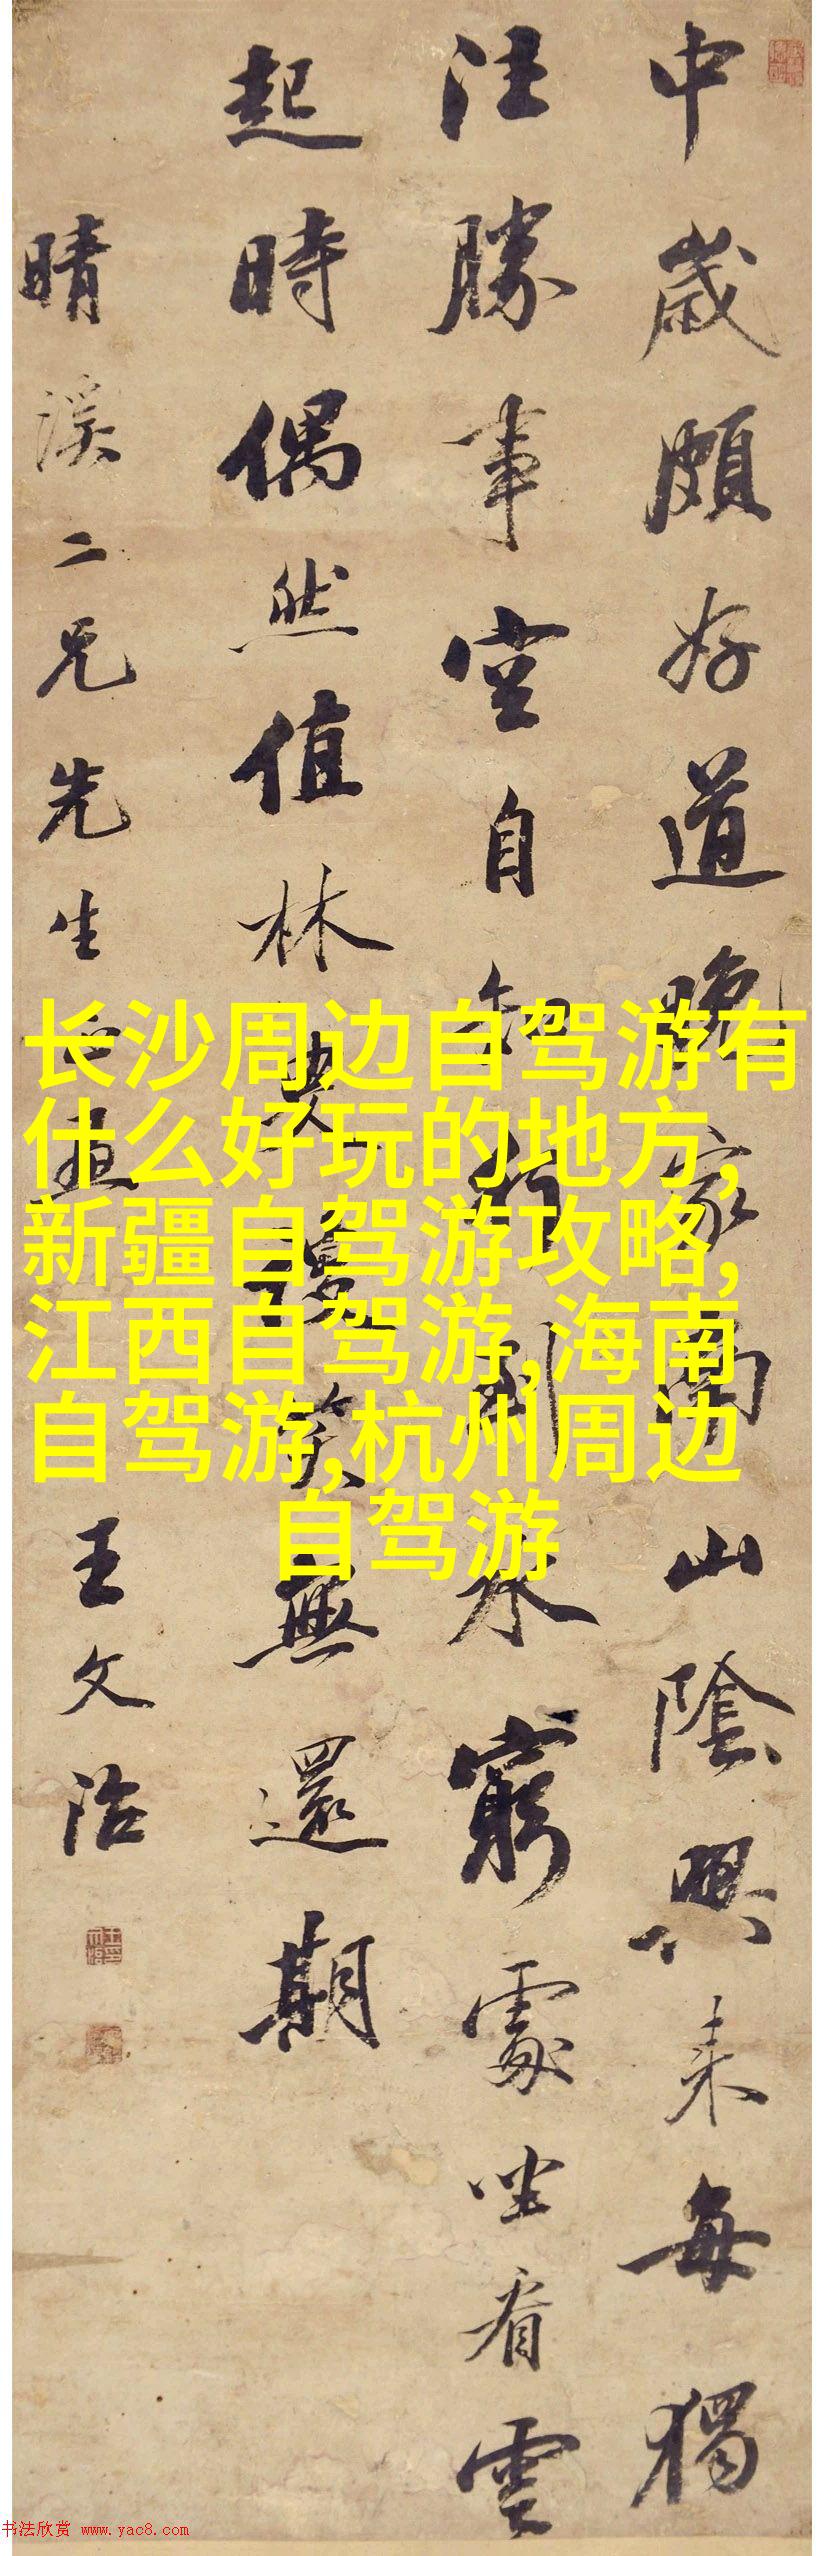 中歲頗好道晚家南山陰興来每獨
往勝事空自知行到水窮處坐看雲
起時偶然值林叟漫笑無還期
晴溪二兄先生
王文治
长沙周边自驾游有
什么好玩的地方,
新疆自驾游攻略,
江西自驾游,海南
自驾游,杭州周边
自驾游
书法欣赏 www.yac8.com